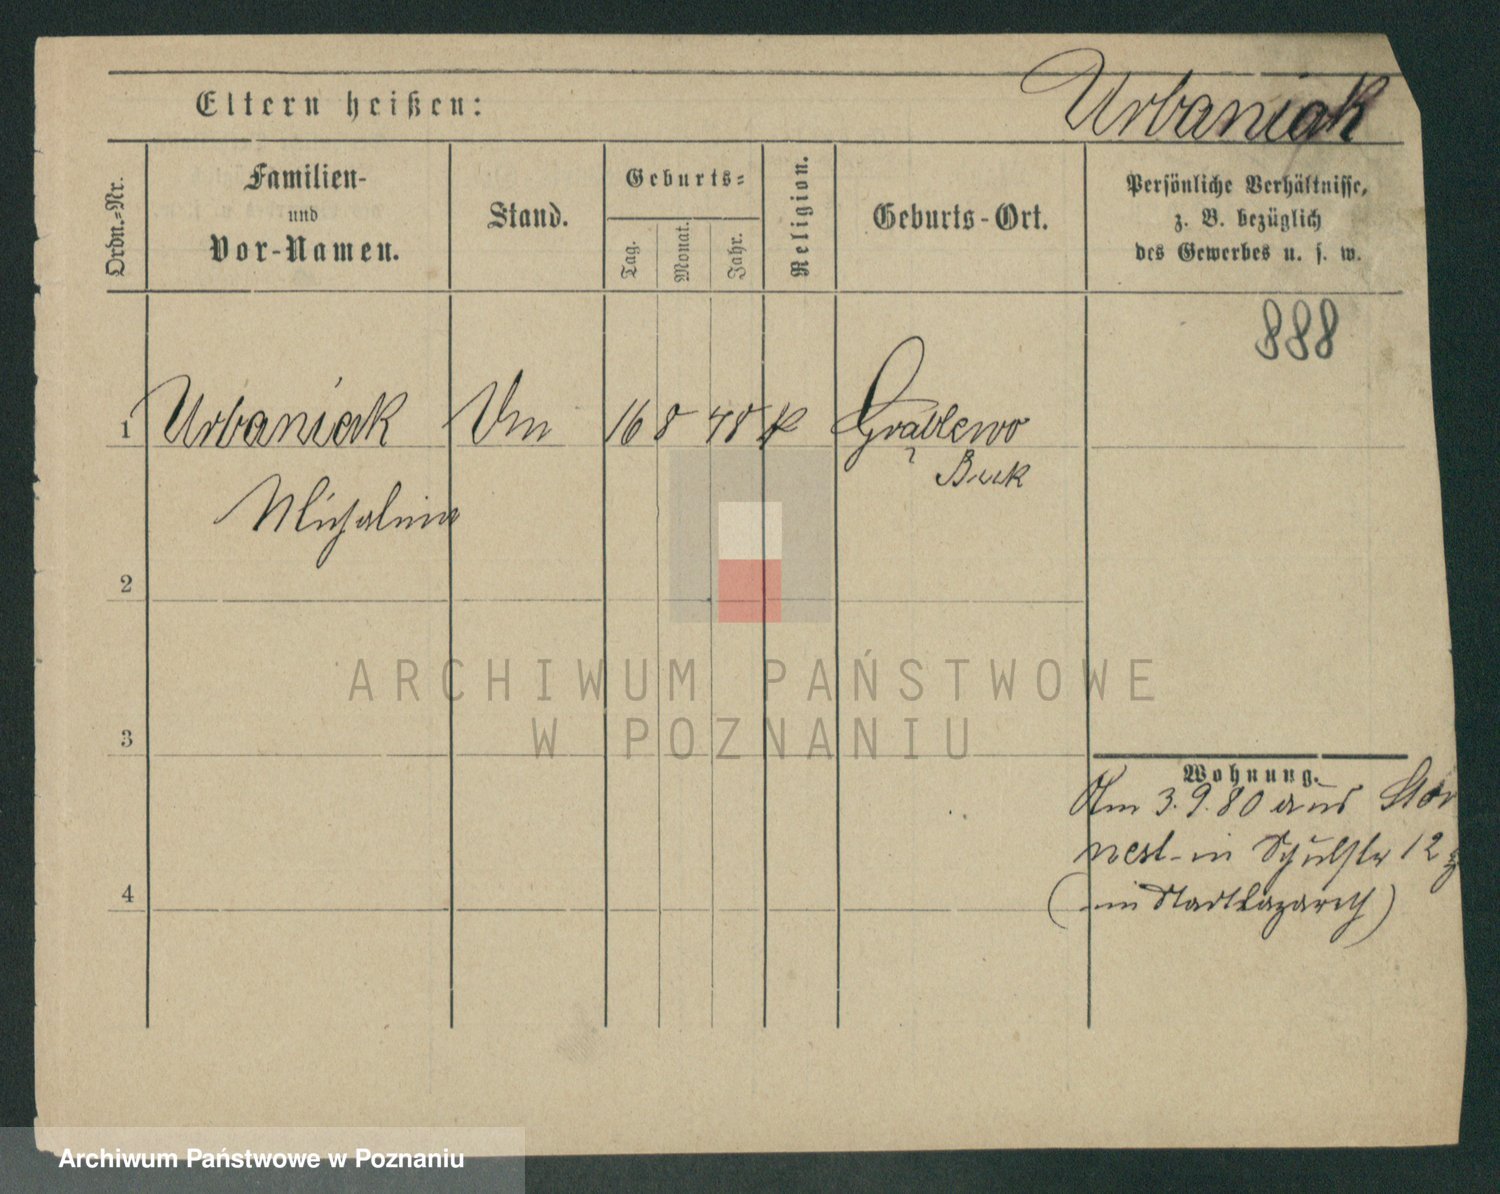 Eltern heißen:
Urbaniak
Ordn.-Nr.
Familien-
und
Vor-Namen.
Stand.
Geburts-
Tag.
Monat.
Jahr.
Religion.
Geburts-Ort.
Persönliche Verhältnisse,
z. B. bezüglich
des Gewerbes u. s. w.
888
1 Urbaniak 16 8 48 k
Buk
Michalina
2
3
4
ARCHIWUM PAŃSTWOWE
W POZNANIU
Wohnung.
Am 3.9.80 aus Stor
nest in Schulstr 12
(im Stadtlazareth)
Archiwum Państwowe w Poznaniu